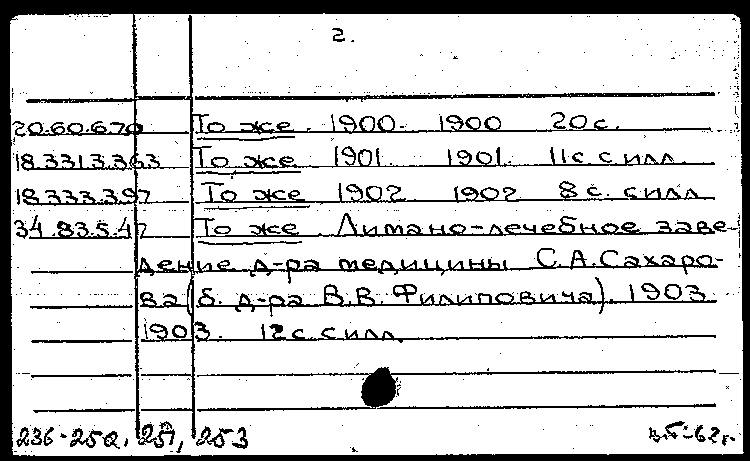 2.
20.60.6.70 То же. 1900. 1900 20 с.
18.331 3.363 То же 1901. 1901. 11 с. с илл.
18.333.3.97 То же 1902 1902 8 с. с илл
34.83.5.47 То же. Лимано-лечебное заве-
дение д-ра медицины С.А. Сахаро-
ва (б. д-ра В.В. Филиповича). 1903.
1903. 12 с. с илл.
236-250, 251, 253